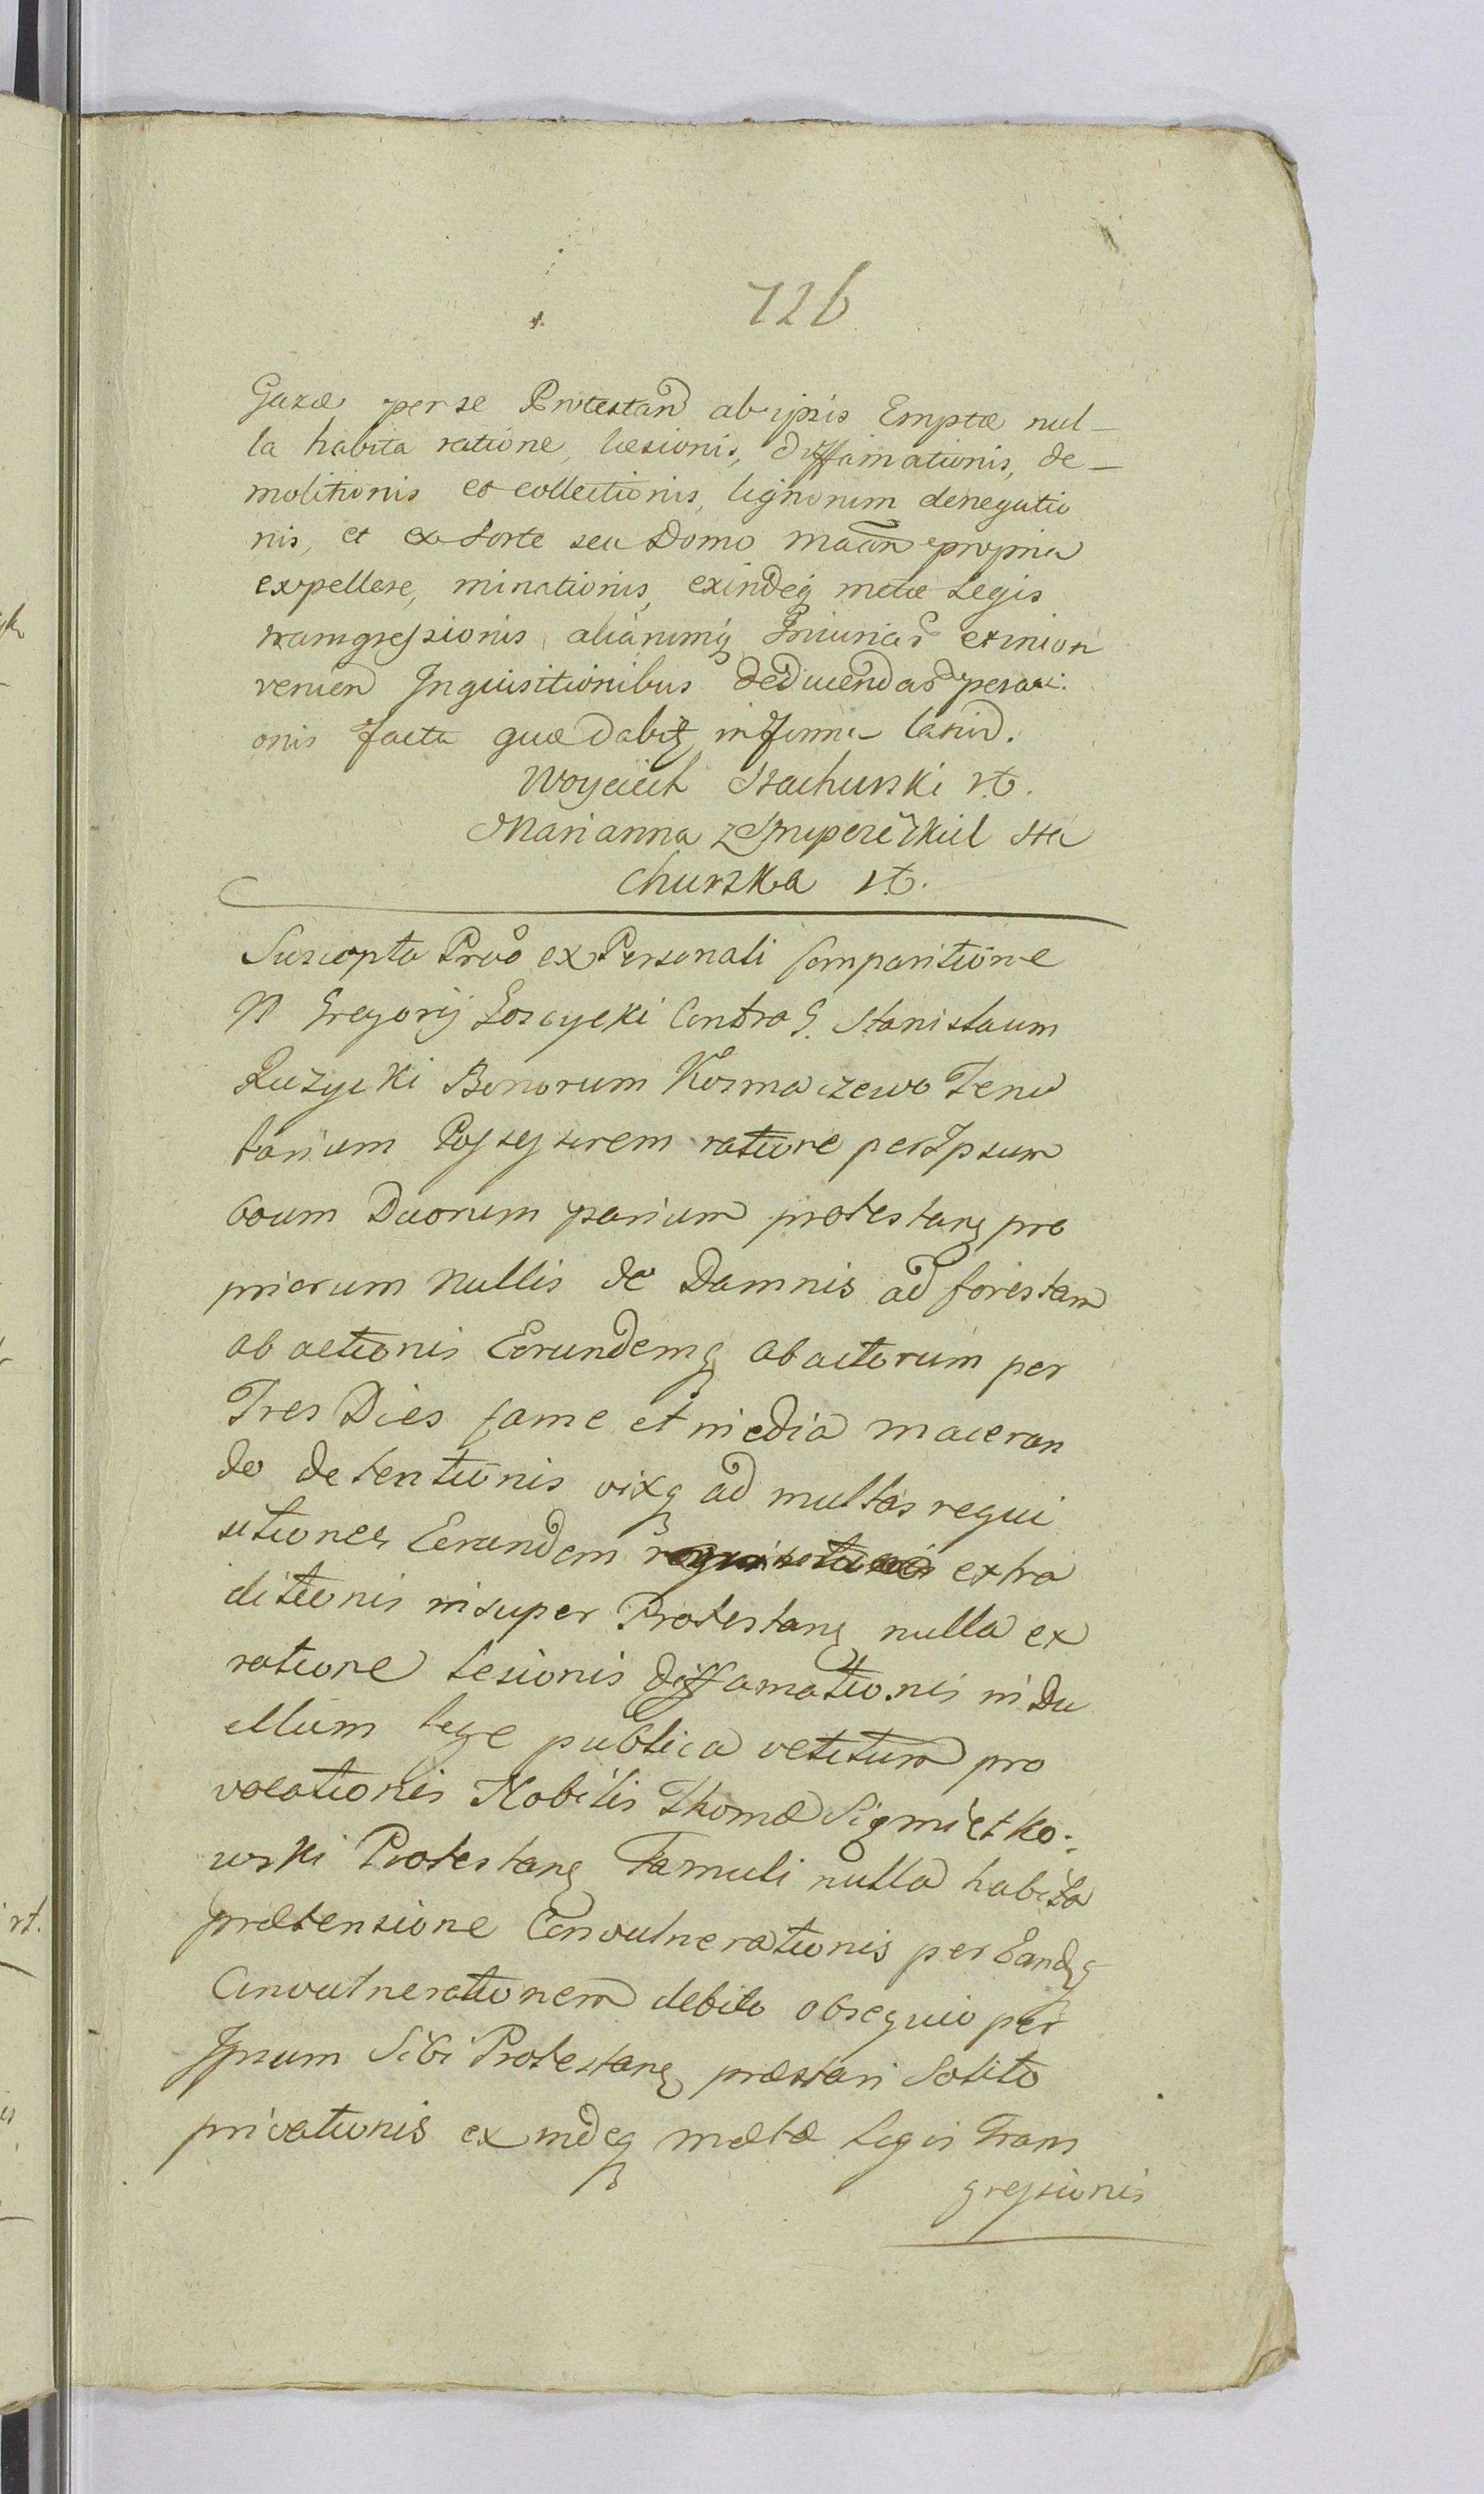 726
Gazæ per se Protestand ab ipsis Emptæ nul-
la habita ratione, læsionis, diffamationis, de-
molitionis et collectionis, lignorum denegatio
nis, et ex sorte seu Domo propria
expellere, minationis, exindeq metæ Legis
transgressionis aliarumq Iniurias
venien Inquisitionibus deducendas
onis facta quæ dabitz in Forma latius.
Woyciech Stachurski rt.
Marianna z Sta
churska rt.
Suscepta Prõ ex Personali Comparitione
N Gregorij Łoscycki Contra G. Stanislaum
Łuzycki Bonorum Kosmaczewo Tenu
tarium Possessorem ratione per Ipsum
boum Duorum parium protestang pro
priorum nullis de Damnis ad forestam
abactionis Eorundemq abactorum per
Tres Dies fame et inedia maceran
do detentionis vixq ad multas requi
sitiones Eorundem extra
ditionis insuper Protestang nulla ex
ratione lesionis diffamationis in Du
ellum lege publica vetitum pro
vocationis Nobilis Thomæ Sigmietko:
wski Protestang Famuli nulla habita
prætensione Convulnerationis per Eandq
Convulnerationem debito obsequio per
Ipsum Sibi Protestang præstari Solito
privationis exindeq metæ Legis Trans
gressionis